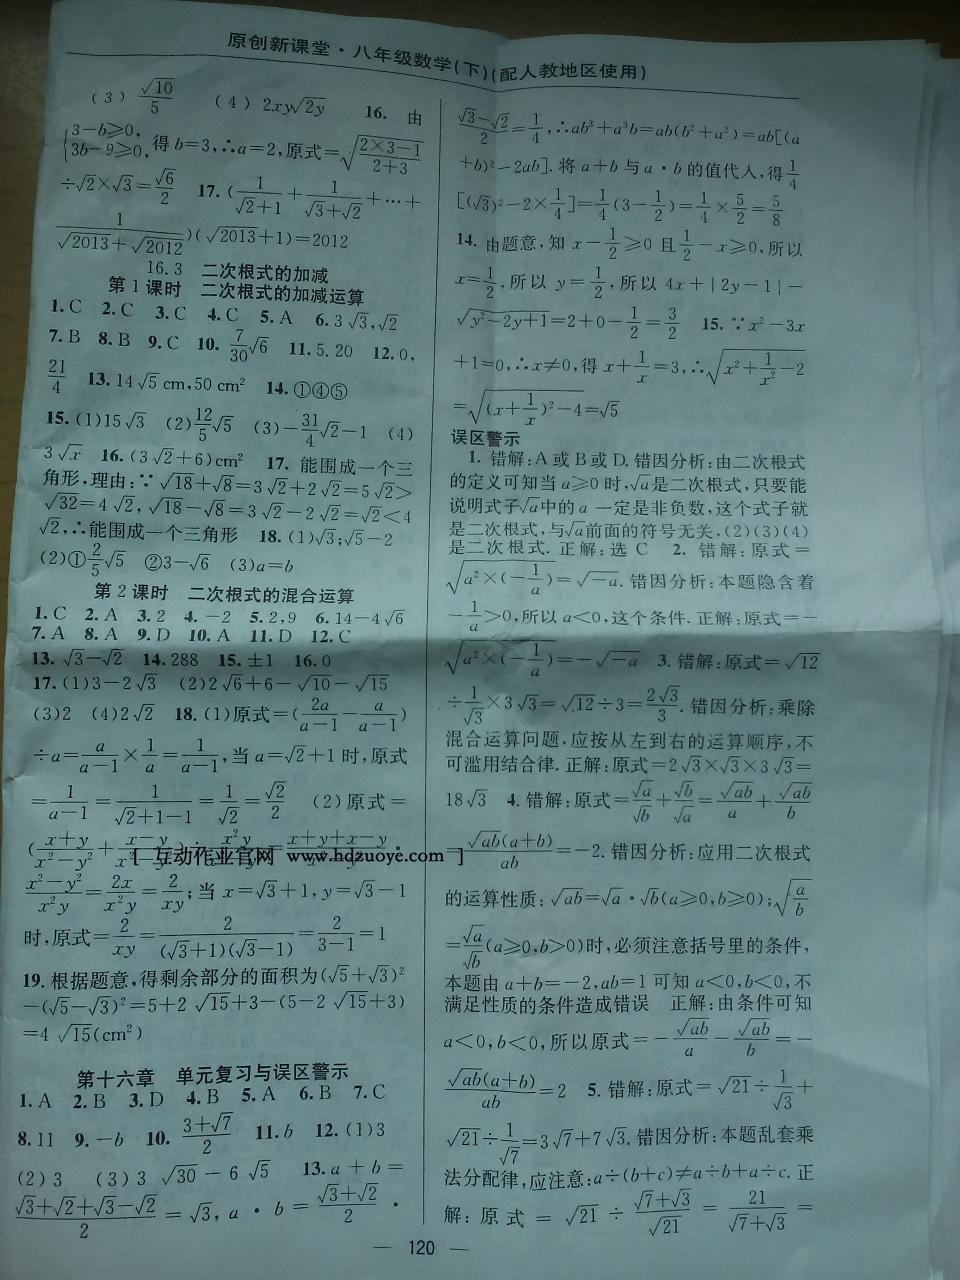 原创新课堂·八年级数学(下)(配人教地区使用)
(3) √10/5 (4) 2xy√2y 16. 由
{3-b≥0, 3b-9≥0, 得 b=3,∴a=2,原式=√((2×3-1)/(2+3))
÷√2×√3=√6/2 17. (1/(√2+1)+1/(√3+√2)+…+
1/(√2013+√2012))(√2013+1)=2012
16.3 二次根式的加减
第1课时 二次根式的加减运算
1. C 2. C 3. C 4. C 5. A 6. 3√3,√2
7. B 8. B 9. C 10. 7/30√6 11. 5.20 12. 0,
21/4 13. 14√5 cm,50 cm² 14. ①④⑤
15. (1)15√3 (2)12/5√5 (3)-31/4√2-1 (4)
3√x 16. (3√2+6)cm² 17. 能围成一个三
角形,理由:∵√18+√8=3√2+2√2=5√2>
√32=4√2,√18-√8=3√2-2√2=√2<4
√2,∴能围成一个三角形 18. (1)√3;√5-2
(2)①2/5√5 ②3-√6 (3)a=b
第2课时 二次根式的混合运算
1. C 2. A 3. 2 4. -2 5. 2,9 6. 14-4√6
7. A 8. A 9. D 10. A 11. D 12. C
13. √3-√2 14. 288 15. ±1 16. 0
17. (1)3-2√3 (2)2√6+6-√10-√15
(3)2 (4)2√2 18. (1)原式=(2a/(a-1)-a/(a-1))
÷a=a/(a-1)×1/a=1/(a-1),当 a=√2+1 时,原式
=1/(a-1)=1/(√2+1-1)=1/√2=√2/2 (2)原式=
((x+y)/(x²-y²)+(x-y)/(x²-y²))÷x²y/(x²-y²)=(x+y+x-y)/(x²-y²)·
[ 互动作业官网 www.hdzuoye.com ]
(x²-y²)/x²y=2x/x²y=2/xy;当 x=√3+1,y=√3-1
时,原式=2/xy=2/((√3+1)(√3-1))=2/(3-1)=1
19. 根据题意,得剩余部分的面积为(√5+√3)²
-(√5-√3)²=5+2√15+3-(5-2√15+3)
=4√15(cm²)
第十六章 单元复习与误区警示
1. A 2. B 3. D 4. B 5. A 6. B 7. C
8. 11 9. -b 10. (3+√7)/2 11. b 12. (1)3
(2)3 (3)3√30-6√5 13. a+b=
(√3+√2+√3-√2)/2=√3,a·b=(√3+√2)/2·
(√3-√2)/2=1/4,∴ab³+a³b=ab(b²+a²)=ab[(a
+b)²-2ab]. 将 a+b 与 a·b 的值代入,得1/4
[(√3)²-2×1/4]=1/4(3-1/2)=1/4×5/2=5/8
14. 由题意,知 x-1/2≥0 且1/2-x≥0,所以
x=1/2,所以 y=1/2,所以 4x+|2y-1|-
√(y²-2y+1)=2+0-1/2=3/2 15. ∵x²-3x
+1=0,∴x≠0,得 x+1/x=3,∴√(x²+1/x²-2)
=√((x+1/x)²-4)=√5
误区警示
1. 错解:A 或 B 或 D. 错因分析:由二次根式
的定义可知当 a≥0 时,√a是二次根式,只要能
说明式子√a中的 a 一定是非负数,这个式子就
是二次根式,与√a前面的符号无关,(2)(3)(4)
是二次根式. 正解:选 C 2. 错解:原式=
√(a²×(-1/a))=√-a. 错因分析:本题隐含着
-1/a>0,所以 a<0,这个条件. 正解:原式=-
√(a²×(-1/a))=-√-a 3. 错解:原式=√12
÷1/√3×3√3=√12÷3=2√3/3. 错因分析:乘除
混合运算问题,应按从左到右的运算顺序,不
可滥用结合律. 正解:原式=2√3×√3×3√3=
18√3 4. 错解:原式=√a/√b+√b/√a=√ab/a+√ab/b
=√ab(a+b)/ab=-2. 错因分析:应用二次根式
的运算性质:√ab=√a·√b(a≥0,b≥0);√(a/b)
=√a/√b(a≥0,b>0)时,必须注意括号里的条件,
本题由 a+b=-2,ab=1 可知 a<0,b<0,不
满足性质的条件造成错误 正解:由条件可知
a<0,b<0,所以原式=-√ab/a-√ab/b=-
√ab(a+b)/ab=2 5. 错解:原式=√21÷1/√3+
√21÷1/√7=3√7+7√3. 错因分析:本题乱套乘
法分配律,应注意:a÷(b+c)≠a÷b+a÷c. 正
解:原式=√21÷(√7+√3)/√21=21/(√7+√3)=
— 120 —